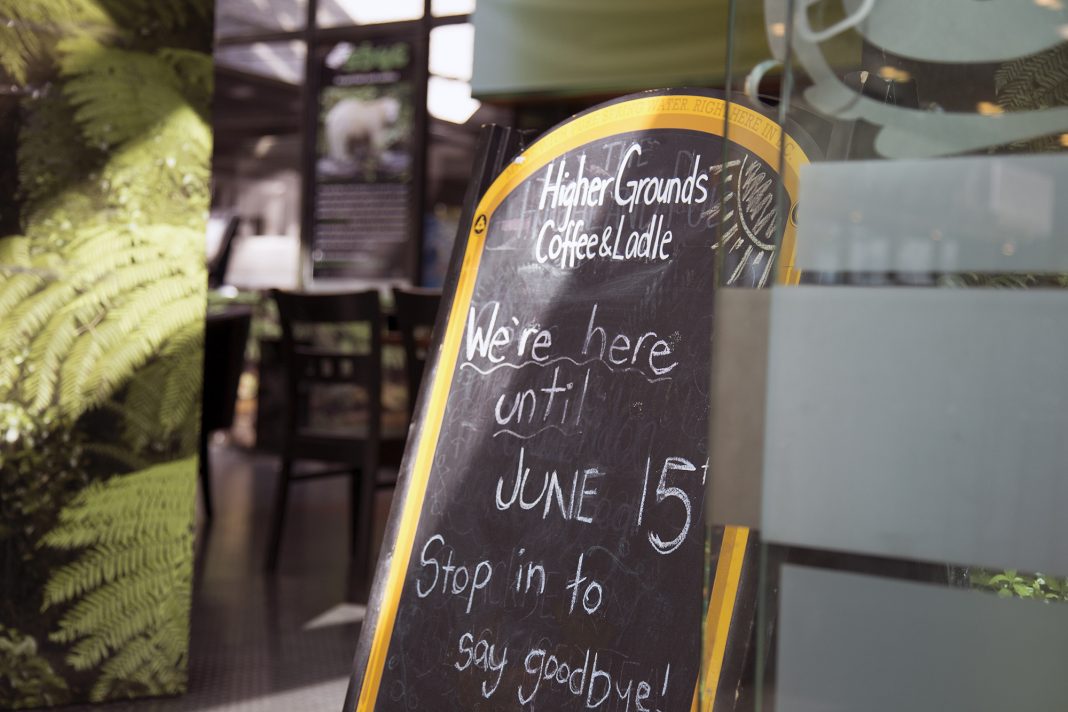 WATER. RIGHT HERE IN BC.
Higher Grounds
Coffee & Ladle
We're here
until
JUNE 15t
Stop in to
say goodbye!